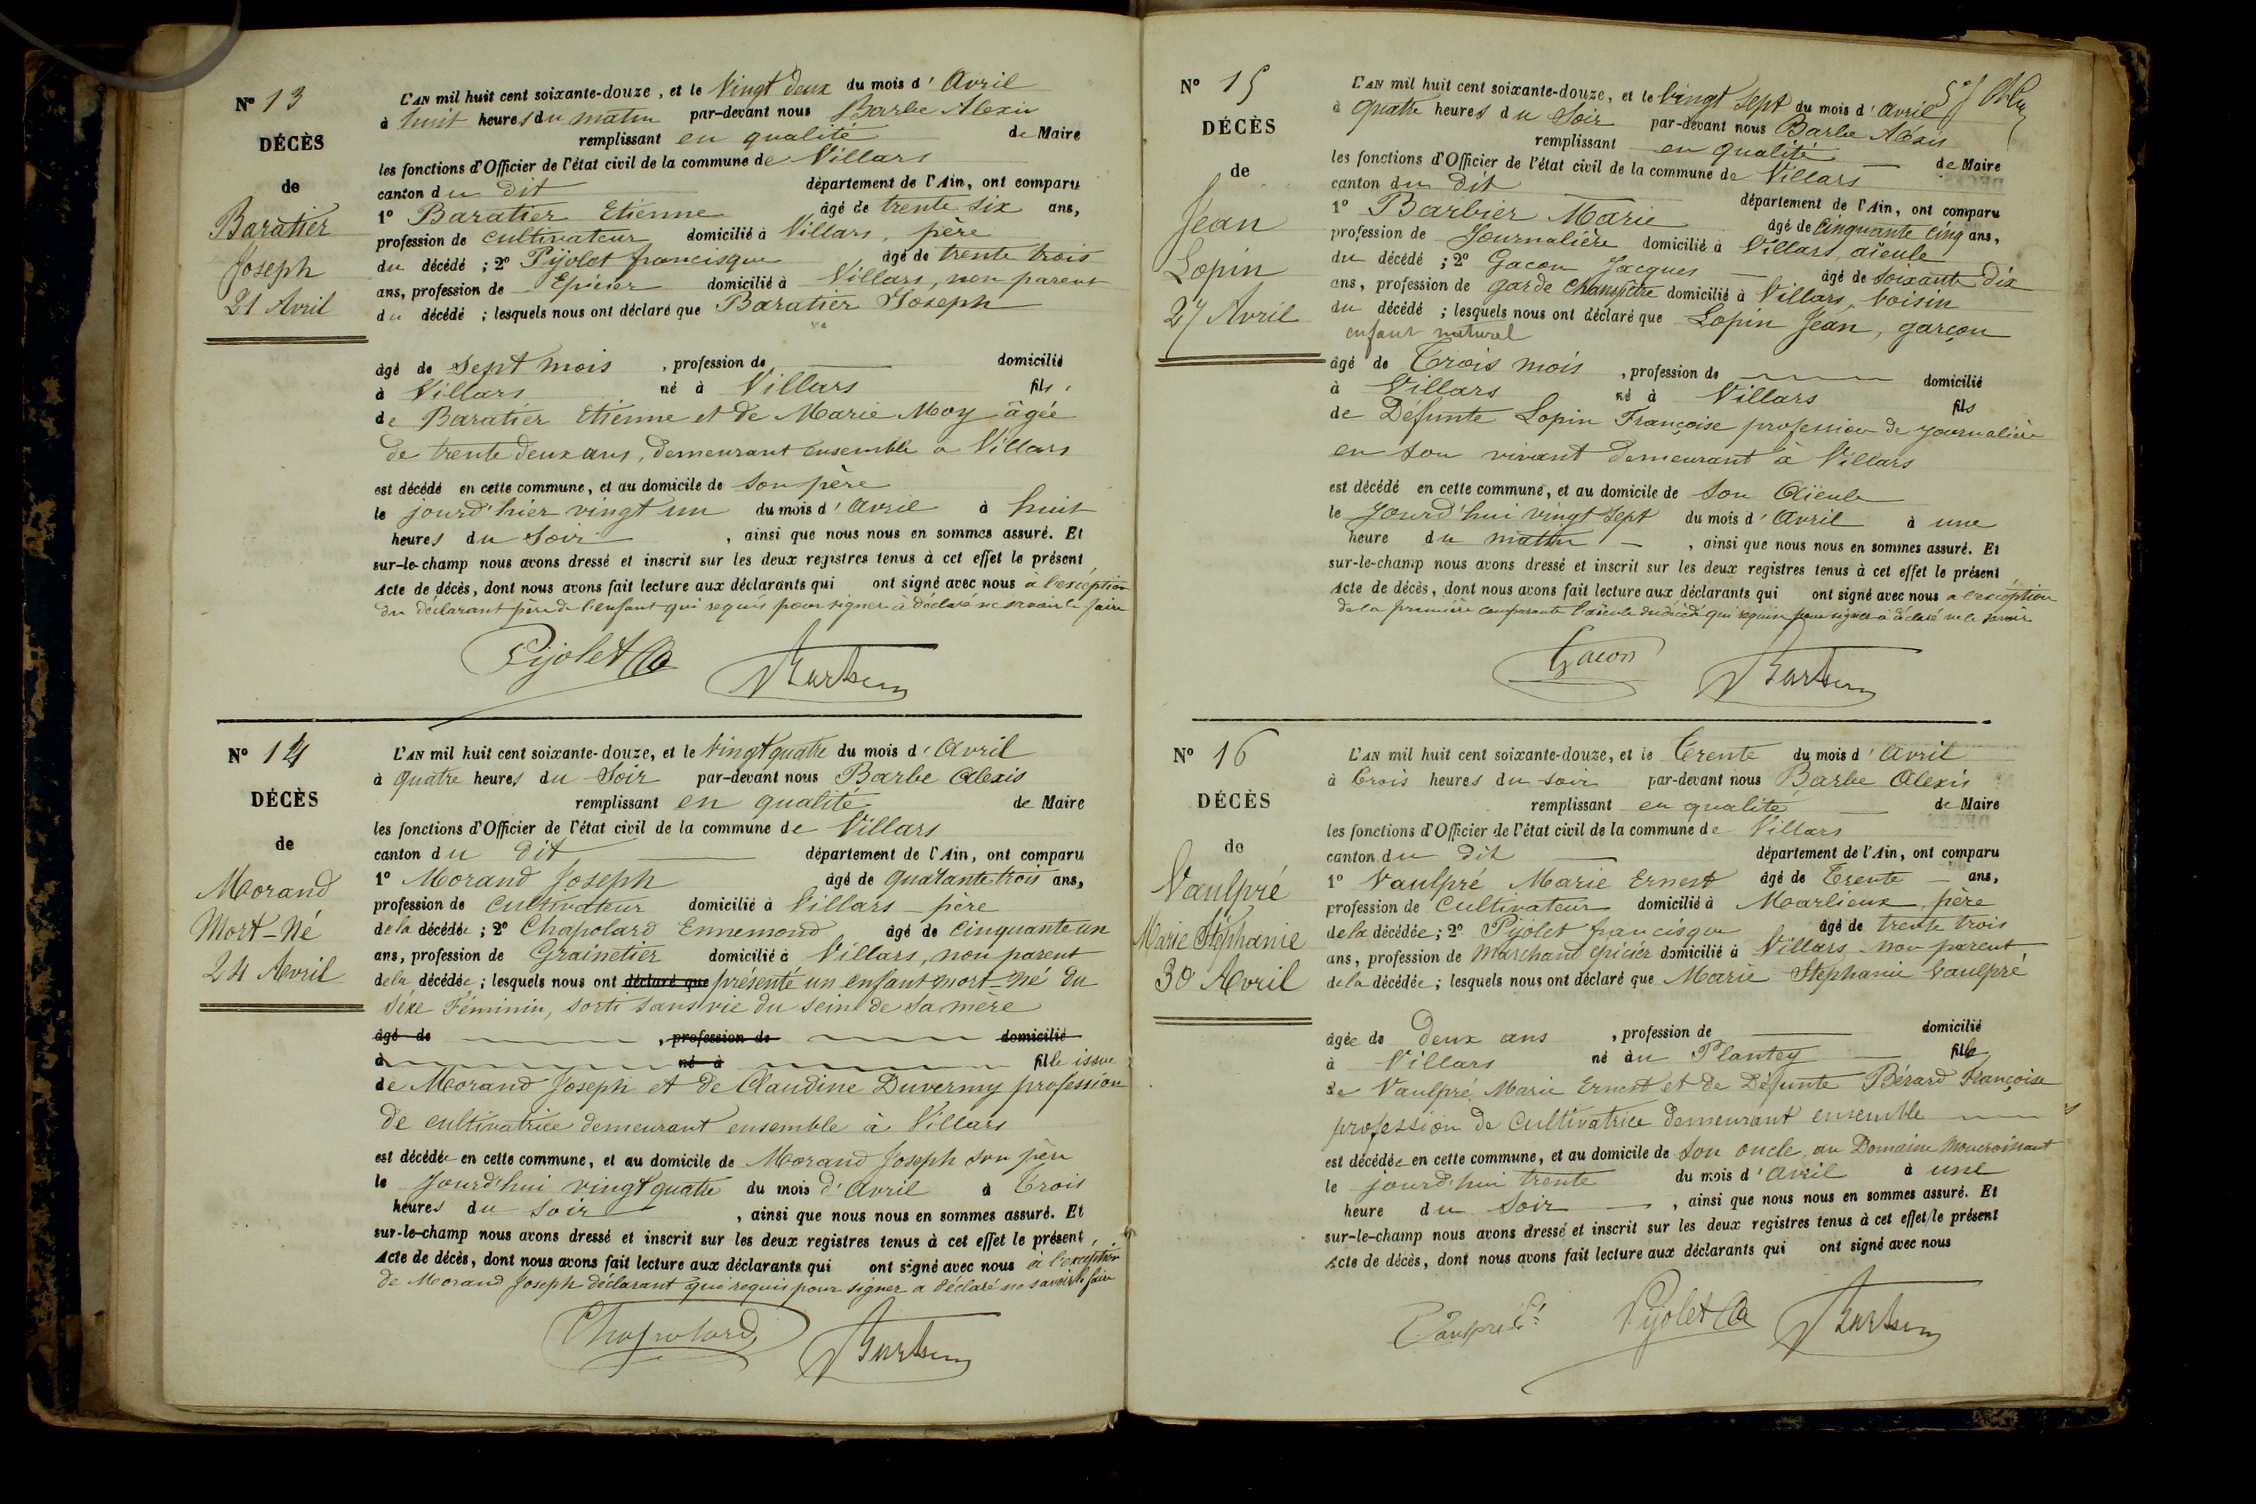 N° 13
DÉCÈS
de
Baratier
Joseph
21 Avril
L'AN mil huit cent soixante-douze, et le Vingt deux du mois d'Avril
à huit heures du matin par-devant nous Barbe Alexis
remplissant en qualité de Maire
les fonctions d'Officier de l'état civil de la commune de Villars
canton du dit département de l'Ain, ont comparu
1° Baratier Etienne âgé de trente six ans,
profession de cultivateur domicilié à Villars, père
du décédé ; 2° Pijolet francisque âgé de trente trois
ans, profession de Epicier domicilié à Villars, non parent
du décédé ; lesquels nous ont déclaré que Baratier Joseph
âgé de Sept mois , profession de domicilié
à Villars né à Villars fils
de Baratier Etienne et de Marie Moy âgée
de trente deux ans, demeurant ensemble à Villars
est décédé en cette commune, et au domicile de son père
le jourd'hier vingt un du mois d'Avril à huit
heures du Soir , ainsi que nous nous en sommes assuré. Et
sur-le-champ nous avons dressé et inscrit sur les deux registres tenus à cet effet le présent
Acte de décès, dont nous avons fait lecture aux déclarants qui ont signé avec nous à l'exception
du déclarant père de l'enfant qui requis pour signer à déclaré ne savoir le faire
Pijolet
N° 14
DÉCÈS
de
Morand
Mort-Né
24 Avril
L'AN mil huit cent soixante-douze, et le Vingt quatre du mois d'Avril
à quatre heures du Soir par-devant nous Barbe Alexis
remplissant en qualité de Maire
les fonctions d'Officier de l'état civil de la commune de Villars
canton du dit département de l'Ain, ont comparu
1° Morand Joseph âgé de quarante trois ans,
profession de cultivateur domicilié à Villars - père
de la décédée ; 2° Chapolard Ennemond âgé de cinquante un
ans, profession de Grainetier domicilié à Villars, non parent
de la décédée ; lesquels nous ont déclaré que présenté un enfant mort-né du
sexe Féminin, sorti sans vie du sein de sa mère
âgé de , profession de domicilié
à né à fille issue
de Morand Joseph et de Claudine Duvermy profession
de cultivatrice demeurant ensemble à Villars
est décédée en cette commune, et au domicile de Morand Joseph son père
le Jourd'hui vingt quatre du mois d'avril à Trois
heures du soir , ainsi que nous nous en sommes assuré. Et
sur-le-champ nous avons dressé et inscrit sur les deux registres tenus à cet effet le présent
Acte de décès, dont nous avons fait lecture aux déclarants qui ont signé avec nous à l'exception
de Morand Joseph déclarant qui requis pour signer a déclaré ne savoir le faire
Chapolard
N° 15
DÉCÈS
de
Jean
Lopin
27 Avril
L'AN mil huit cent soixante-douze, et le Vingt Sept du mois d'Avril
à quatre heures du Soir par-devant nous Barbe Alexis
remplissant en qualité de Maire
les fonctions d'Officier de l'état civil de la commune de Villars
canton du dit département de l'Ain, ont comparu
1° Barbier Marie âgé de Cinquante cinq ans,
profession de Journalière domicilié à Villars, aïeule
du décédé ; 2° Gacon Jacques âgé de soixante dix
ans, profession de garde champêtre domicilié à Villars, voisin
du décédé ; lesquels nous ont déclaré que Lopin Jean, garçon
enfant naturel
âgé de Trois mois , profession de domicilié
à Villars né à Villars fils
de Défunte Lopin Françoise profession de journalière
en son vivant demeurant à Villars
est décédé en cette commune, et au domicile de son Aïeule
le Jourd'hui vingt sept du mois d'Avril à une
heure du matin , ainsi que nous nous en sommes assuré. Et
sur-le-champ nous avons dressé et inscrit sur les deux registres tenus à cet effet le présent
Acte de décès, dont nous avons fait lecture aux déclarants qui ont signé avec nous a l'exception
de la première comparante l'aïeule du décédé qui requise pour signer a déclaré ne le savoir
Gacon
N° 16
DÉCÈS
de
Vaulpré
Marie Stéphanie
30 Avril
L'AN mil huit cent soixante-douze, et le Trente du mois d'Avril
à Trois heures du soir par-devant nous Barbe Alexis
remplissant en qualité de Maire
les fonctions d'Officier de l'état civil de la commune de Villars
canton du dit département de l'Ain, ont comparu
1° Vaulpré Marie Ernest âgé de Trente ans,
profession de Cultivateur domicilié à Marlieux, père
de la décédée ; 2° Pijolet francisque âgé de trente trois
ans, profession de Marchand épicier domicilié à Villars non parent
de la décédée ; lesquels nous ont déclaré que Marie Stephanie Vaulpré
âgée de Deux ans , profession de domicilié
à Villars né au Plantey fille
de Vaulpré Marie Ernest et de Défunte Bérard Françoise
profession de Cultivatrice demeurant ensemble
est décédée en cette commune, et au domicile de son oncle, au Domaine Moncroissant
le jourd'hui trente du mois d'avril à une
heure du Soir , ainsi que nous nous en sommes assuré. Et
sur-le-champ nous avons dressé et inscrit sur les deux registres tenus à cet effet le présent
Acte de décès, dont nous avons fait lecture aux déclarants qui ont signé avec nous
Vaulpré Pijolet